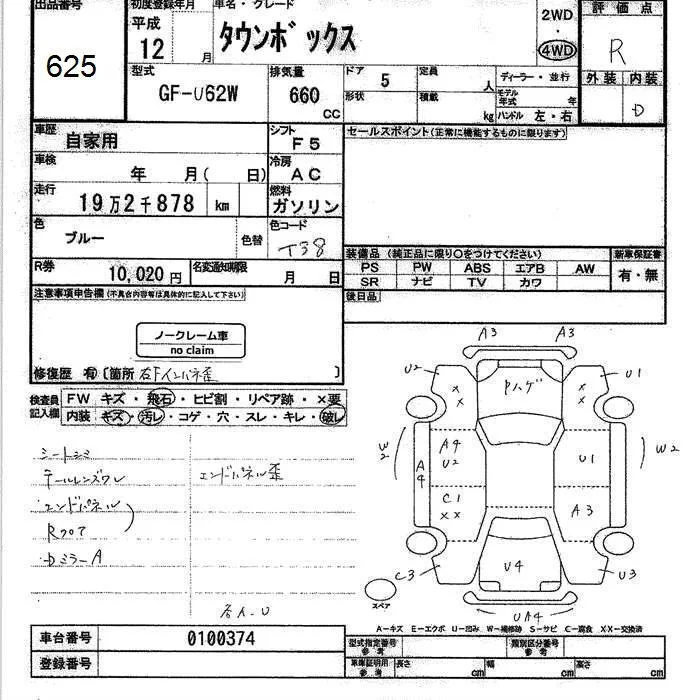 出品番号 初度登録年月 車名・グレード 評価点
625 平成 12 月 タウンボックス 2WD ・ 4WD R
型式 GF-U62W 排気量 660 CC ドア 5 定員 人 ディーラー・並行 外装 内装
形状 積載 kg モデル年式 年 ハンドル 左・右 D
車歴 自家用 シフト F5 セールスポイント(正常に機能するものに限ります)
車検 年 月( 日) 冷房 AC
走行 19万2千878 km 燃料 ガソリン
色 ブルー 色替 色コード T38
装備品(純正品に限り○をつけてください) 新車保証書
PS PW ABS エアB AW 有・無
SR ナビ TV カワ
R券 10,020円 名変通知期限 月 日
後日品
注意事項申告欄(不具合内容等は具体的に記入して下さい)
ノークレーム車
no claim
修復歴 有 〔箇所 右下インパネ歪 〕
検査員記入欄 FW キズ・飛石・ヒビ割・リペア跡・×要
内装 キズ・汚レ・コゲ・穴・スレ・キレ・破レ
シートシミ
テールレンズワレ エンドパネル歪
エンドパネル
Rフロア
DミラーA
A3 A3
U2 Pハゲ U1
W2 A4 A4 U2 U1 W2
C1 XX A3
C3 U4 U3
スペア UA4
A-キズ E-エクボ U-凹ミ W-補修跡 S-サビ C-腐食 XX-交換済
車台番号 0100374 型式指定番号 参考 類別区分番号 参考
登録番号 車庫証明用 参考 長さ cm 幅 cm 高さ cm